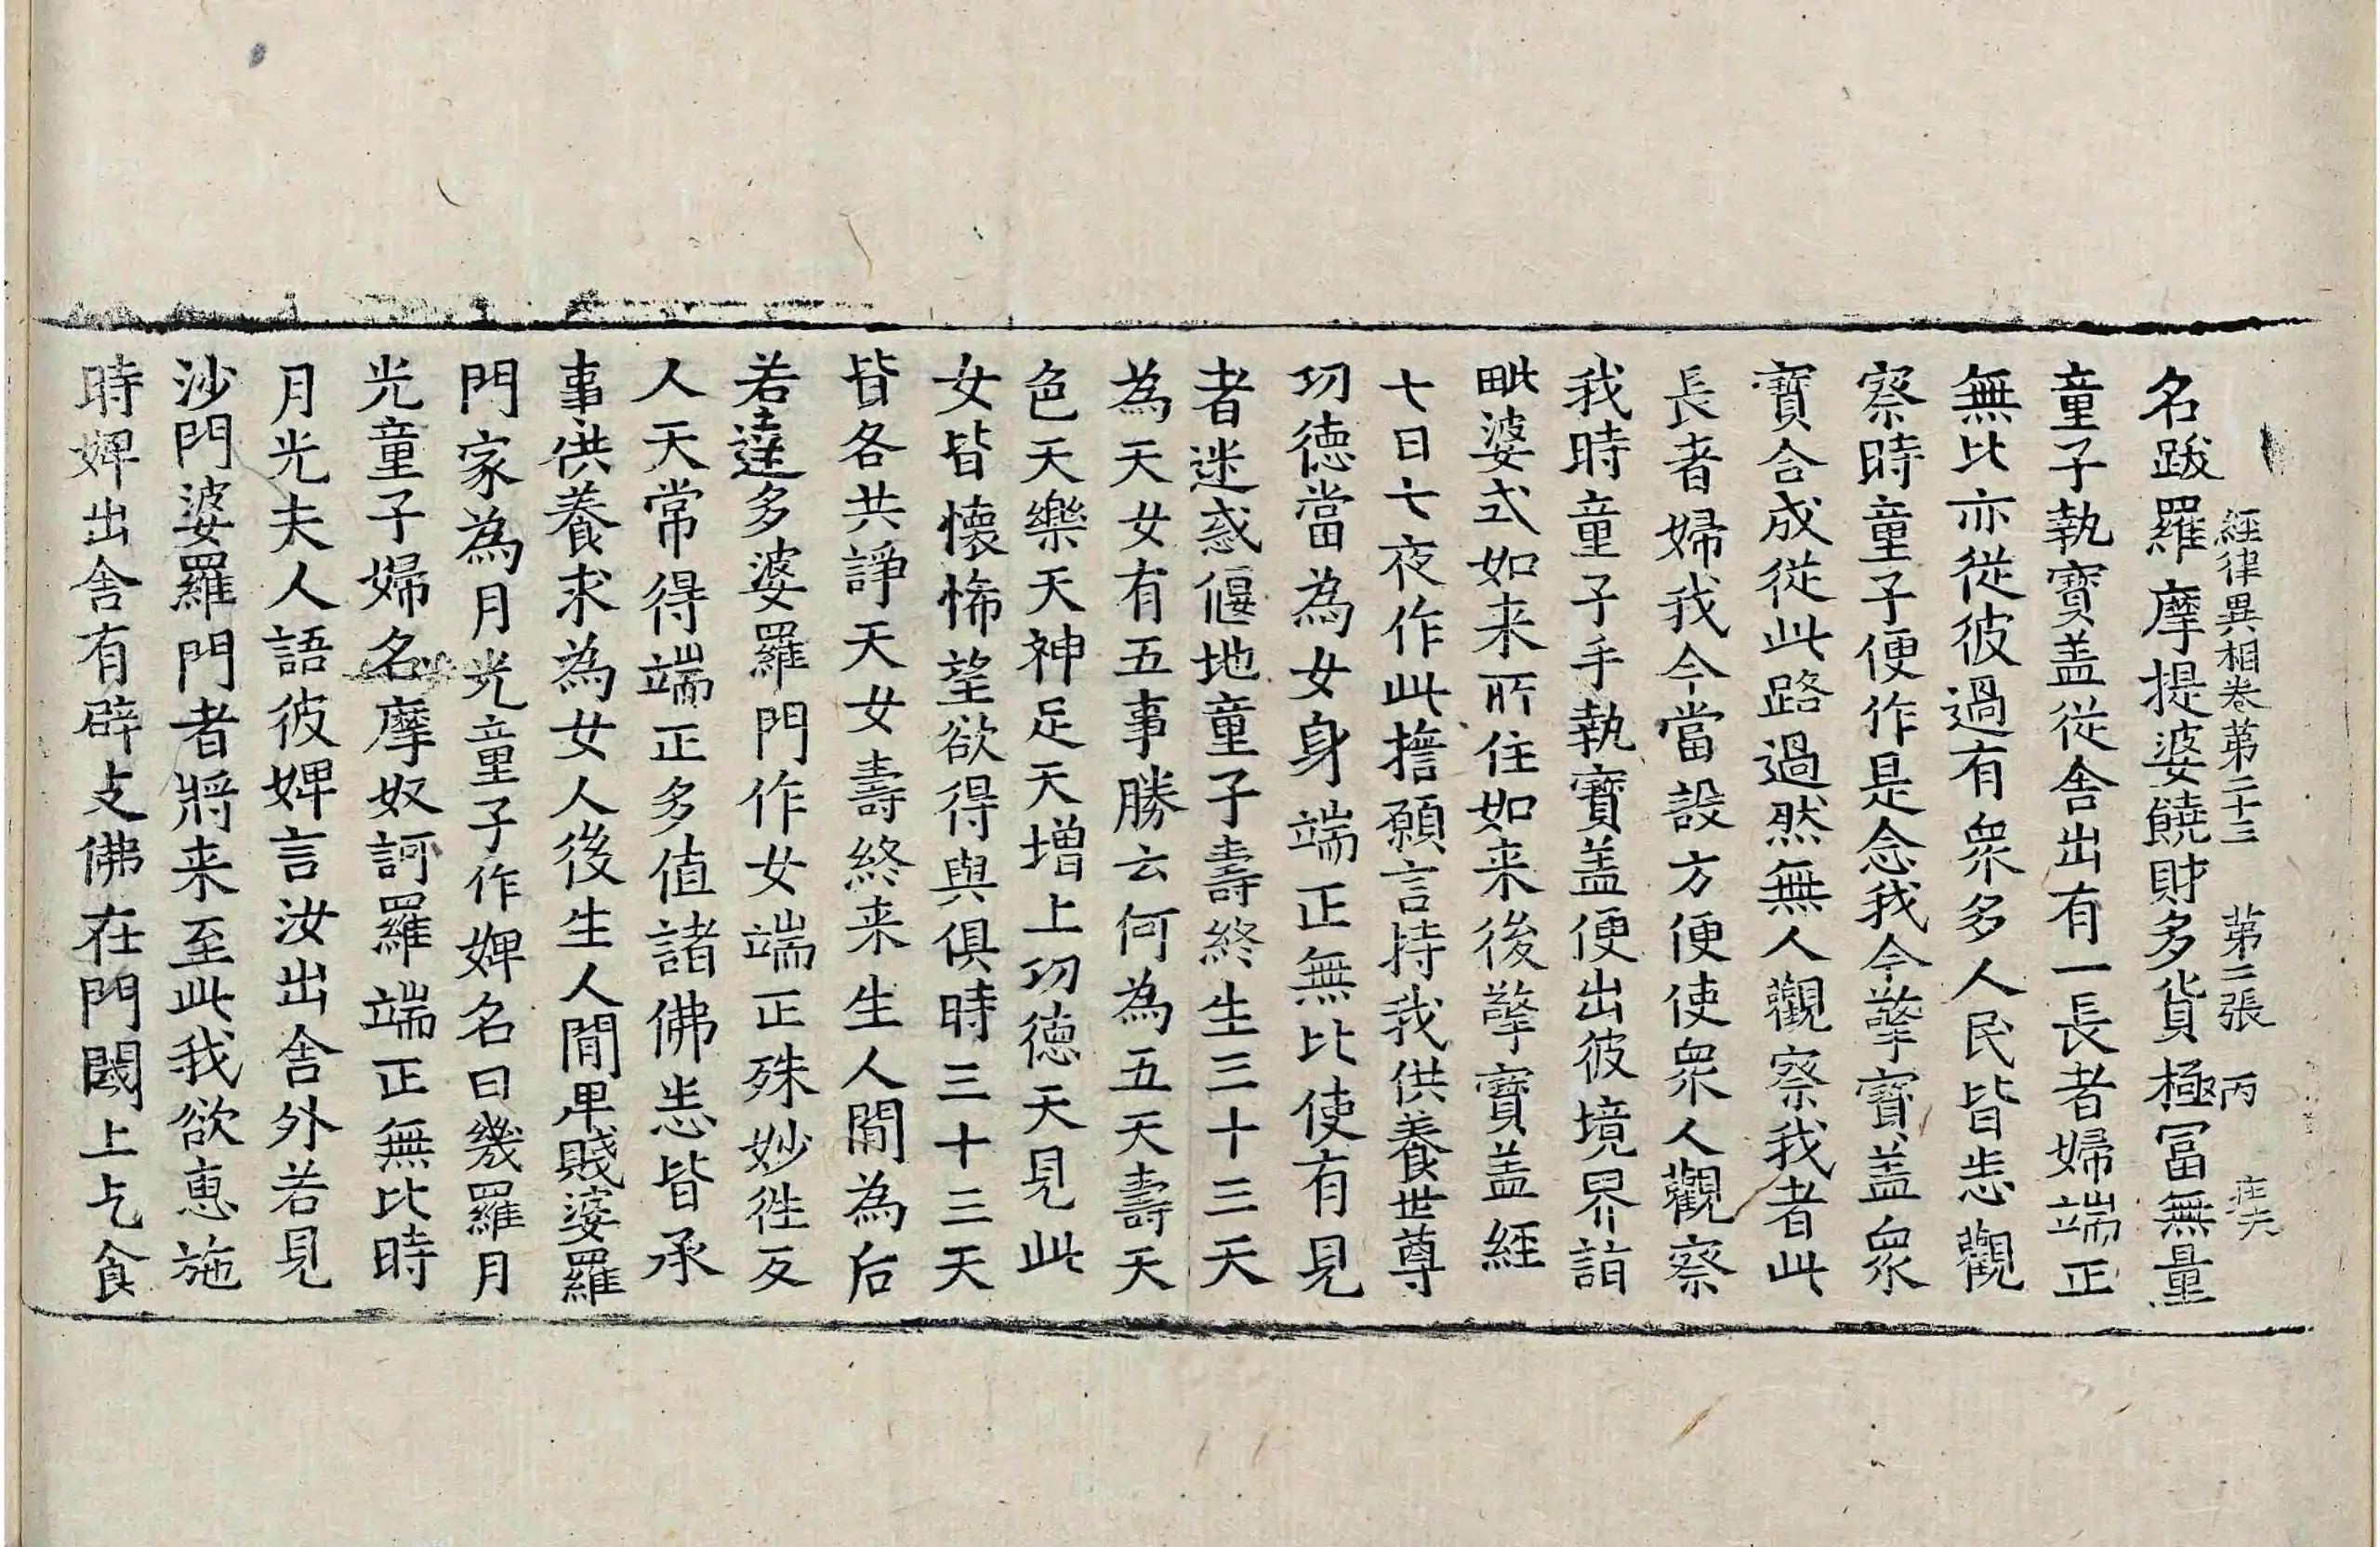 經律異相卷第二十三 第二張 丙
名跋羅摩提婆饒財多貨極冨無量
童子執寶盖從舍出有一長者婦端正
無比亦從彼過有衆多人民皆悉觀
察時童子便作是念我今擎寶盖衆
寶合成從此路過然無人觀察我者此
長者婦我今當設方便使衆人觀察
我時童子手執寶盖便出彼境界詣
毗婆式如来所住如来後擎寶盖經
七日七夜作此擔願言持我供養世尊
功德當為女身端正無比使有見
者迷惑偃地童子壽終生三十三天
為天女有五事勝云何為五天壽天
色天樂天神足天增上功德天見此
女皆懷悕望欲得與俱時三十三天
皆各共諍天女壽終来生人間為后
若達多婆羅門作女端正殊妙往反
人天常得端正多值諸佛悉皆承
事供養求為女人後生人間卑賤婆羅
門家為月光童子作婢名曰幾羅月
光童子婦名摩奴訶羅端正無比時
月光夫人語彼婢言汝出舍外若見
沙門婆羅門者將来至此我欲惠施
時婢出舍有辟支佛在門閫上乞食